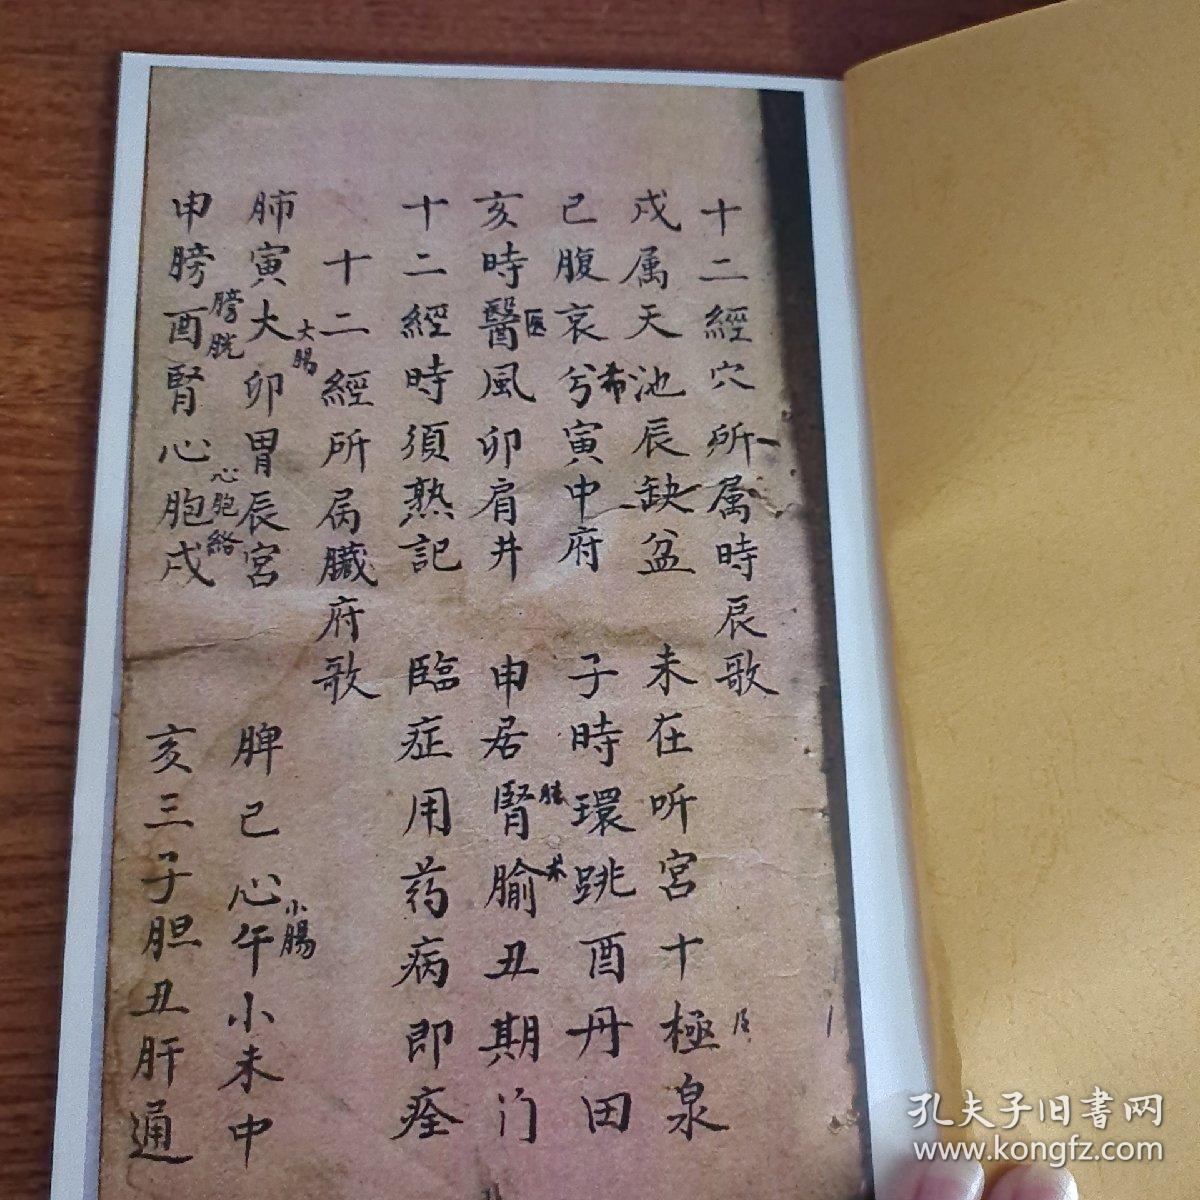 十二經穴所属時辰歌
戍属天池辰缺盆　未在听宮十極泉
己腹哀兮寅中府　子時環跳酉丹田
希
亥時醫風卯肩井　申居腎腧丑期门
医
十二經時須熟記　臨症用药病即痊
十二經所属臓府歌
肺寅大卯胃辰宮　脾己心午小未中
大腸
小腸
申膀酉腎心胞戍　亥三子胆丑肝通
膀胱
心胞絡
孔夫子旧書网
www.kongfz.com